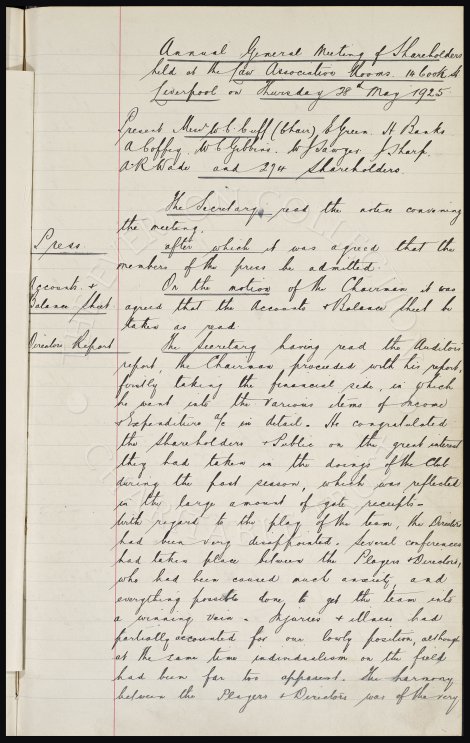 Annual General Meeting of Shareholders
held at the Law Association Rooms. 14 Cook St
Liverpool on Thursday 28th May 1925
Present Messrs W. C. Cuff (Chair), E Green. H Banks
A Coffey. W C Gibbins. W J Sawyer. J Sharp.
A. R. Wade and 294 Shareholders.
The Secretary read the notice convening
the meeting.
Press. after which it was agreed that the
members of the press be admitted.
Accounts & On the motion of the Chairman it was
Balance Sheet. agreed that the Accounts & Balance Sheet be
taken as read.
Directors Report The Secretary having read the Auditors
report, the Chairman proceeded with his report,
firstly taking the financial side, in which
he went into the various items of Income
& Expenditure a/c in detail. He congratulated
the Shareholders & Public on the great interest
they had taken in the doings of the Club
during the past season, which was reflected
in the large amount of gate receipts.
With regard to the play of the team, the Directors
had been very disappointed. Several conferences
had taken place between the Players & Directors,
who had been caused much anxiety, and
everything possible done to get the team into
a winning vein. Injuries & illness had
partially accounted for our lowly position, although
at the same time individualism on the field
had been far too apparent. The harmony
between the Players & Directors was of the very